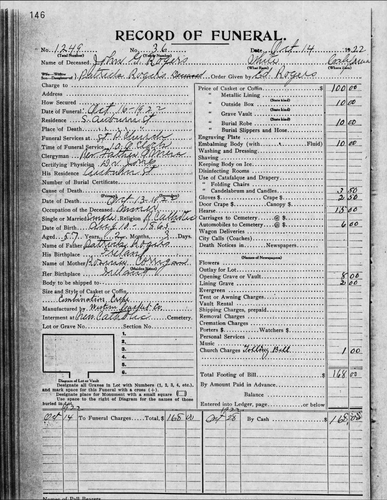 146
RECORD OF FUNERAL.
No. 1249 No. 36 Date Oct 14 1922
(Total Number) (Yearly Number)
Name of Deceased John G. Rogers White
(What Race) (Where Born)
Patrick Rogers Deceased Order Given by Ed. Rogers
Charge to
Address
How Secured
Date of Funeral Oct 16-1922
Residence S. Auburn St
Place of Death
Funeral Services at St P. Church
Time of Funeral Service 10 O Clock
Clergyman Rev Father
Certifying Physician Dr. Jones
His Residence Auburn St
Number of Burial Certificate
Cause of Death
Date of Death Oct 13 1922
Occupation of the Deceased Miner
Single or Married Single Religion R. Catholic
Date of Birth Aug 10 - 1865
Aged 57 Years 2 Months 3 Days
Name of Father Patrick Rogers
His Birthplace Ireland
Name of Mother Corrigan
(Maiden Name)
Her Birthplace Ireland
Body to be shipped to
Size and Style of Casket or Coffin
Combination
Manufactured by Western Casket Co.
Interment at Catholic Cemetery.
Lot or Grave No. Section No.
Diagram of Lot or Vault
Designate all Graves in Lot with Numbers (1, 2, 3, 4, etc.),
and mark space for this Funeral with a cross (+).
Designate place for Monument with a small square
Use space to the right of Diagram for the names of those
buried in Lot.
Price of Casket or Coffin $ 100 00
" Metallic Lining
(State kind)
" Outside Box 10 00
(State kind)
" Grave Vault
(State kind)
" Burial Robe 10 00
(State kind)
" Burial Slippers and Hose
Engraving Plate
Embalming Body (with Fluid) 10 00
Washing and Dressing
Shaving
Keeping Body on Ice
Disinfecting Rooms
Use of Catafalque and Drapery
" Folding Chairs
" Candelabrum and Candles 3 50
Gloves $ Crape $ 2 50
Door Crape $ Canopy $
Hearse 15 00
Carriages to Cemetery @ $
Automobiles to Cemetery @ $ 6 00
Wagon Deliveries
City Calls (Coaches)
Death Notices in Newspapers
(Names of Newspapers)
Flowers
Outlay for Lot
Opening Grave or Vault 8 00
Lining Grave 2 00
Evergreen
Tent or Awning Charges
Vault Rental
Shipping Charges, prepaid
Removal Charges
Cremation Charges
Porters $ Watchers $
Personal Services
Music
Church Charges Tolling Bell 1 00
Total Footing of Bill $ 168 00
By Amount Paid in Advance
Balance
Entered into Ledger, page or below.
1922
Oct 14 To Funeral Charges Total, $
By Cash $